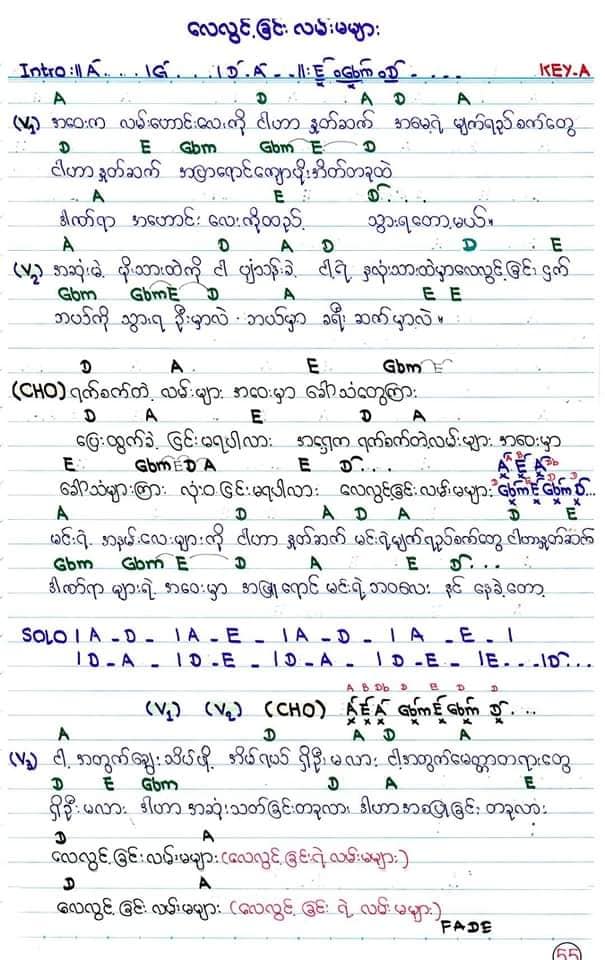 လေလွင့်ခြင်း လမ်းမများ
Intro :|| A . . . . |G . . . |D . A - . . ||: E . Gbm . D . - . . . . KEY-A
A D A D A
(V₁) အဝေးက လမ်းဟောင်းလေးကို ငါဟာ နှုတ်ဆက် အမေ့ရဲ့ မျက်ရည်စက်တွေ
D E Gbm Gbm E D
ငါဟာ နှုတ်ဆက် အပြာရောင်ကျောပိုးအိတ်တခုထဲ
A E D . . .
ဒါဏ်ရာ အဟောင်း လေးကိုထည့် သွားရတော့မယ်။
A D A D D E
(V₂) အဆုံးမဲ့ ပိုးသားထဲကို ငါ ပျံသန်းခဲ့ ငါ့ရဲ့ နှလုံးသားထဲမှာလေလွင့်ခြင်း ၄က်
Gbm Gbm E D A E E
ဘယ်ကို သွားရ ဦးမှာလဲ ဘယ်မှာ ခရီး ဆက်မှာလဲ။
D A E Gbm E
(CHO) ရက်စက်တဲ့ လမ်းများ အဝေးမှာ ခေါ်သံတွေကြား
D A E D A
ပြေးထွက်ခဲ့ ခြင်းမရပါလား အရှေ့က ရက်စက်တဲ့လမ်းများ အဝေးမှာ
E Gbm E D A E D . . . A E A
ခေါ်သံများကြား လုံးဝ ခြင်းမရပါလား လေလွင့်ခြင်းလမ်းမများ Gbm E Gbm D . . .
A D A D A D E
မင်းရဲ့ အနမ်းလေးများကို ငါဟာ နှုတ်ဆက် မင်းရဲ့မျက်ရည်စက်တွေ ငါဟာနှုတ်ဆက်
Gbm Gbm E D A E D . . .
ဒါဏ်ရာ များရဲ့ အဝေးမှာ အဖြူရောင် မင်းရဲ့ဘဝလေး နင် နေခဲ့တော့
SOLO | A - D - | A - E - | A - D - | A - E - |
| D - A - | D - E - | D - A - | D - E - | E . . . | D . . .
A B Db D E D D
(V₁) (V₂) (CHO) A E A Gbm E Gbm D . . .
A D A D A
(V₃) ငါ့ အတွက်ချွေးသိပ်ဖို့ အိပ်ရယ် ရှိဦး မလား ငါ့အတွက်မေတ္တာတရားတွေ
D E Gbm D A E
ရှိဦး မလား ဒါဟာ အဆုံးသတ်ခြင်းတခုလား ဒါဟာအစပြုခြင်း တခုလား
D A
လေလွင့်ခြင်းလမ်းမများ (လေလွင့်ခြင်းရဲ့လမ်းမများ)
D A
လေလွင့်ခြင်း လမ်းမများ (လေလွင့် ခြင်း ရဲ့ လမ်းမများ)
FADE
55